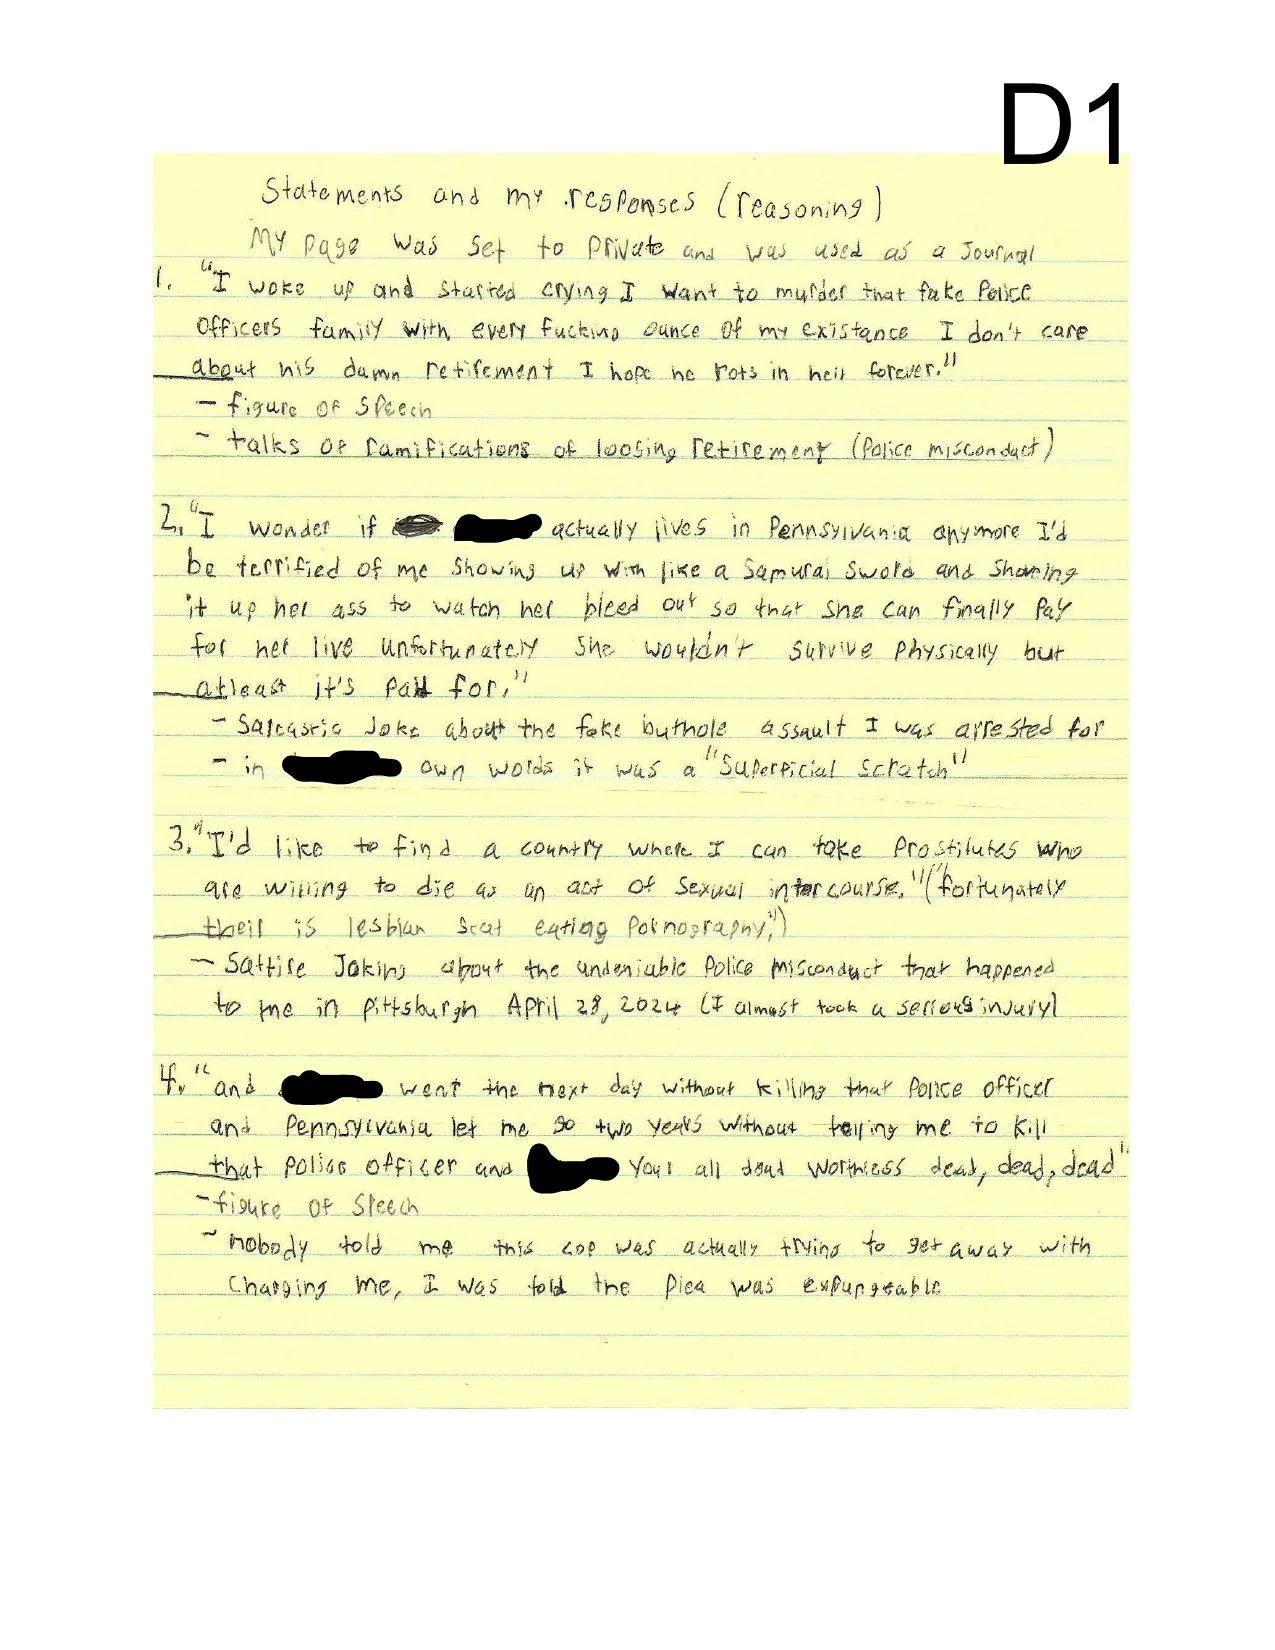 D1
Statements and my responses (reasoning)
My page was set to private and was used as a Journal
1. "I woke up and started crying I want to murder that fake Police
officers family with every fucking ounce of my existance I don't care
about his damn retirement I hope he rots in hell forever."
- figure of speech
- talks of ramifications of loosing retirement (Police misconduct)
2. "I wonder if actually lives in Pennsylvania anymore I'd
be terrified of me showing up with like a Samurai sword and shoving
it up her ass to watch her bleed out so that she can finally pay
for her live unfortunately she wouldn't survive physically but
atleast it's paid for."
- Sarcastic Joke about the fake buthole assault I was arrested for
- in own words it was a "Superficial scratch"
3. "I'd like to find a country where I can take prostitutes who
are willing to die as an act of sexual intercourse." ("fortunately
their is lesbian scat eating pornography.")
- Sattire Joking about the undeniable Police misconduct that happened
to me in pittsburgh April 28, 2024 (I almost took a serious injury)
4. "and went the next day without killing that police officer
and Pennsylvania let me go two years without telling me to kill
that police officer and your all dead worthless dead, dead, dead".
- figure of speech
- nobody told me this cop was actually trying to get away with
charging me, I was told the plea was expungeable